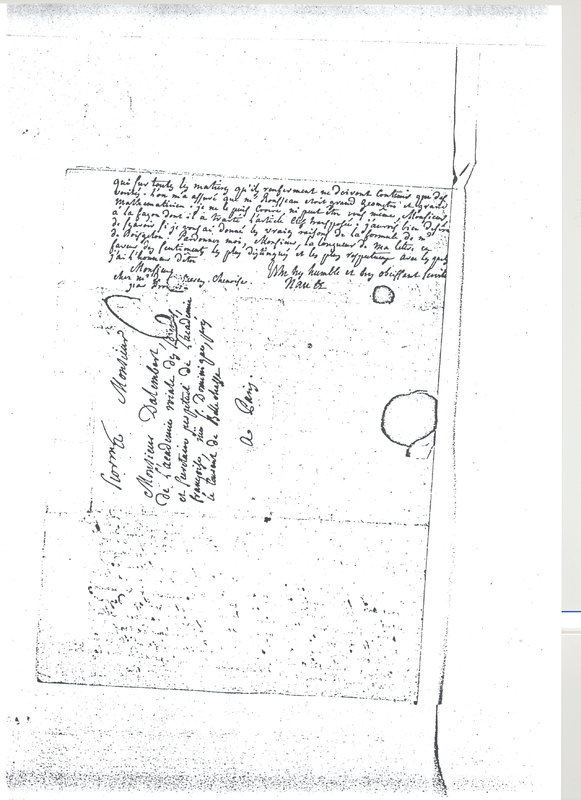 que sur toutes les matieres qu'ils renferment ne doivent contenir que des
verités. L'on m'a assuré que Mr Rousseau etoit grand geometre et grand
mathematicien. je ne le puis croire, n'i peut etre vous même, Monsieur,
à la façon dont il a traité l'article clef transposée; j'aurois bien desiré
de sçavoir si je vous ai donné les vraies raisons de la formule de Mr
de Boisgelou. Pardonnez moi, Monsieur, la longueur de ma letre, et
j'ai l'honneur d'etre avec des sentiments les plus distingués et les plus respectueux
Monsieur
Vtre tres humble et tres obeissant
chez Mr
Nantz
Monsieur
Monsieur Dalembert,
de L'academie roiale des sciences
et secretaire perpetuel de L'academie
françoise, rue St Dominique, prés
le de Belechasse
A Paris.